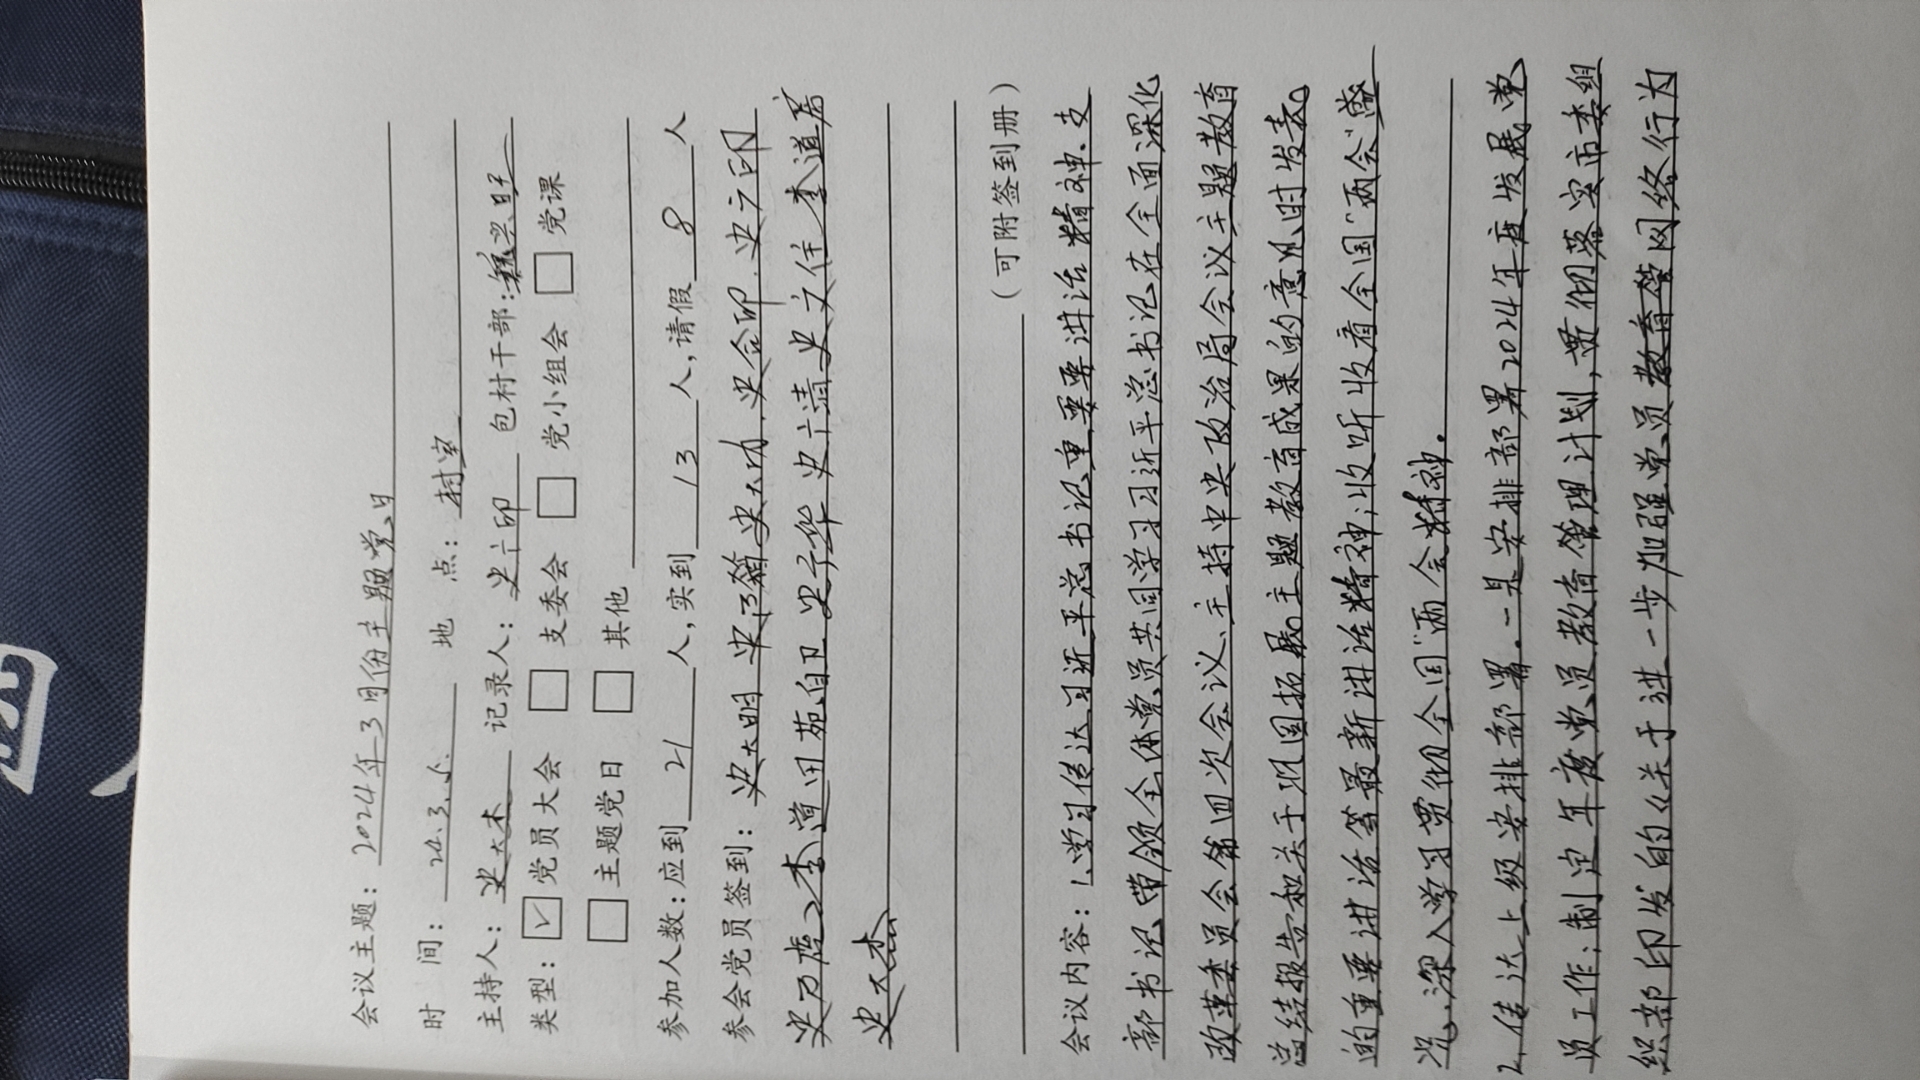 会议主题：2024年3月份主题党日
时 间：24.3.5. 地 点：村室
主持人：史大杰 记录人：史六印 包村干部：魏兴旺
类型：☑党员大会 □支委会 □党小组会 □党课
□主题党日 □其他
参加人数：应到 21 人，实到 13 人，请假 8 人
参会党员签到：史大明 史大功 史合印 史六印
李道田 苑自卫 史子华 史六清 史文住 李道房
史大杰
（可附签到册）
会议内容：1、学习传达习近平总书记重要要讲话精神、支
部书记带领全体党员共同学习习近平总书记在全面深化
改革委员会第四次会议、主持中央政治局会议主题教育
总结报告和关于巩固拓展主题教育成果的意见时发表
的重要讲话等最新讲话精神；收听收看全国“两会”盛
况，深入学习贯彻全国“两会精神。
2、传达上级安排部署。一是安排部署2024年度发展党
员工作；制定年度党员教育管理计划，贯彻落实市委组
织部印发的《关于进一步加强党员教育管网络行为